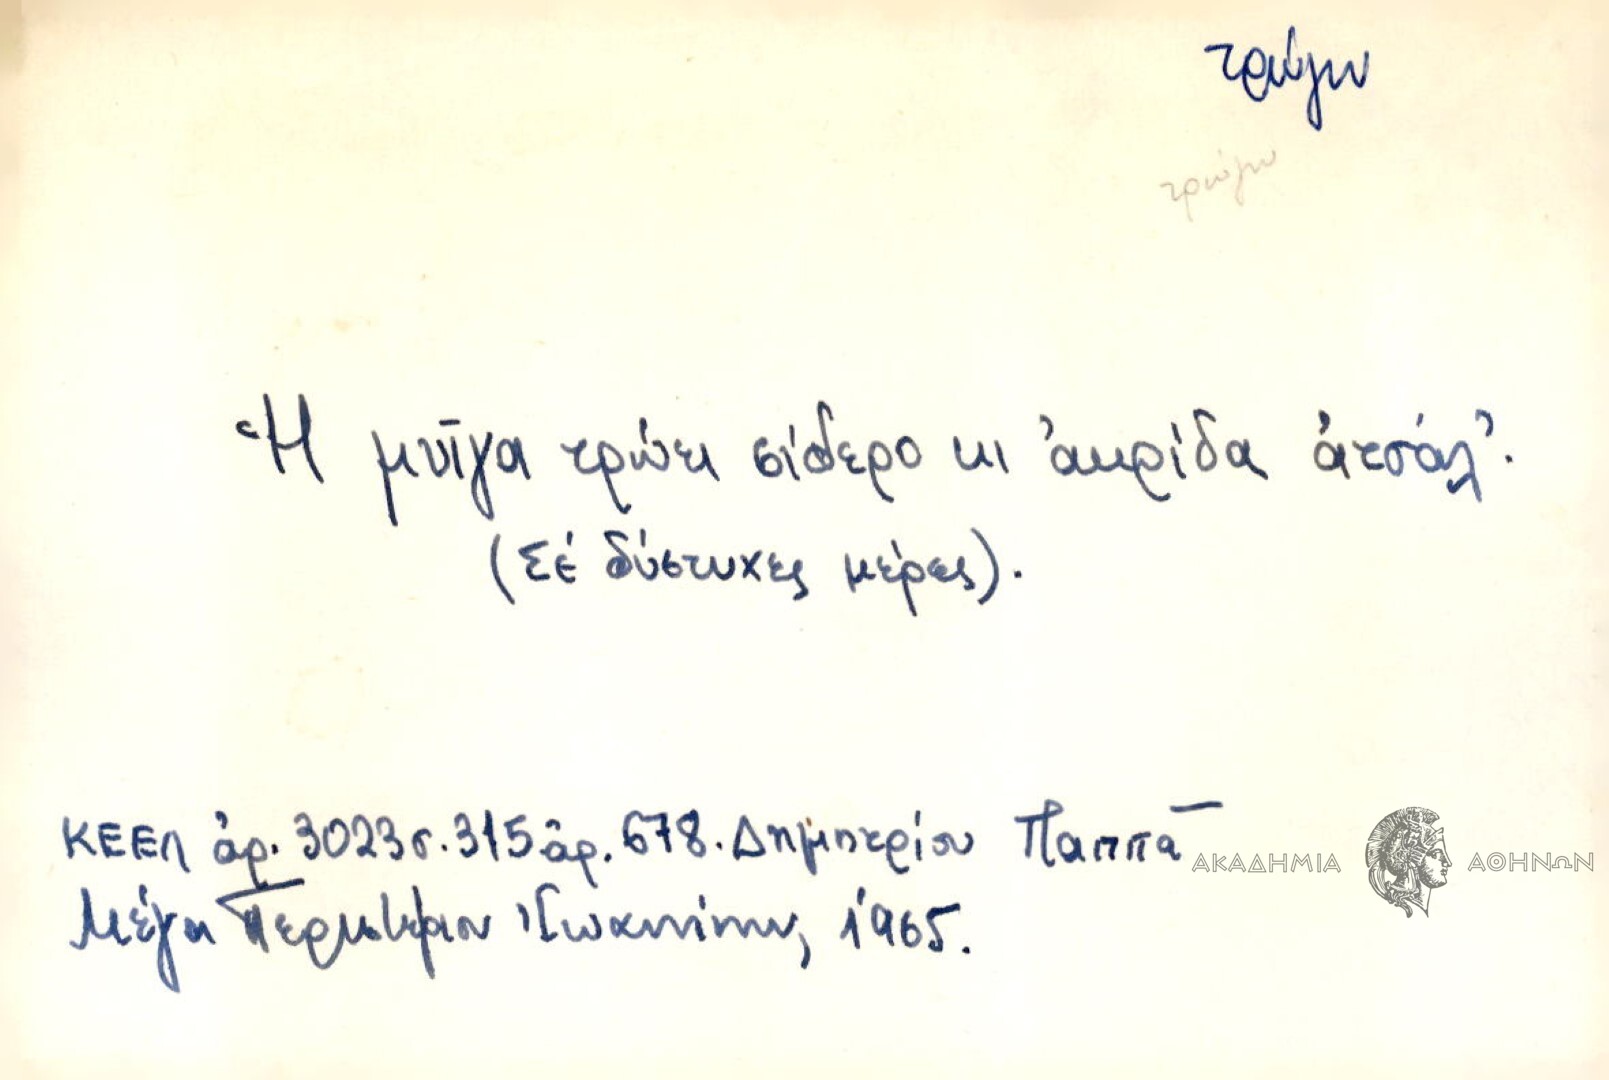 τρώγω
τρώγω
Ἡ μυῖγα τρώει σίδερο κι ἀκρίδα ἀτσάλ'.
(Σέ δύστυχες μέρες).
ΚΕΕΛ ἀρ. 3023 σ. 315 ἀρ. 678. Δημητρίου Παππᾶ
Μέγα Περιστέρι Ἰωαννίνων, 1965.
ΑΚΑΔΗΜΙΑ ΑΘΗΝΩΝ